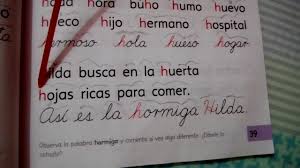 hada hora buho humo huevo
hueco hijo hermano hospital
hermoso hola hueso hogar
Hilda busca en la huerta
hojas ricas para comer.
Así es la hormiga Hilda.
Observa la palabra hormiga y comenta si ves algo diferente.
39